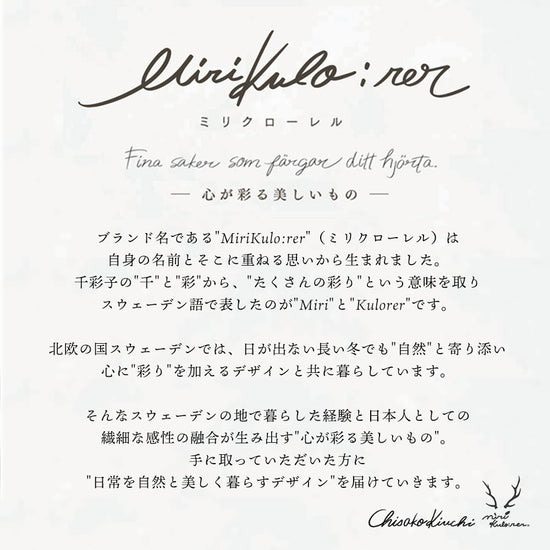 MiriKulo:rer
ミリクローレル
Fina saker som färgar ditt hjörta.
― 心が彩る美しいもの ―
ブランド名である"MiriKulo:rer"（ミリクローレル）は
自身の名前とそこに重ねる思いから生まれました。
千彩子の"千"と"彩"から、"たくさんの彩り"という意味を取り
スウェーデン語で表したのが"Miri"と"Kulorer"です。
北欧の国スウェーデンでは、日が出ない長い冬でも"自然"と寄り添い
心に"彩り"を加えるデザインと共に暮らしています。
そんなスウェーデンの地で暮らした経験と日本人としての
繊細な感性の融合が生み出す"心が彩る美しいもの"。
手に取っていただいた方に
"日常を自然と美しく暮らすデザイン"を届けていきます。
Chisako Kiuchi
miri
kulorer.